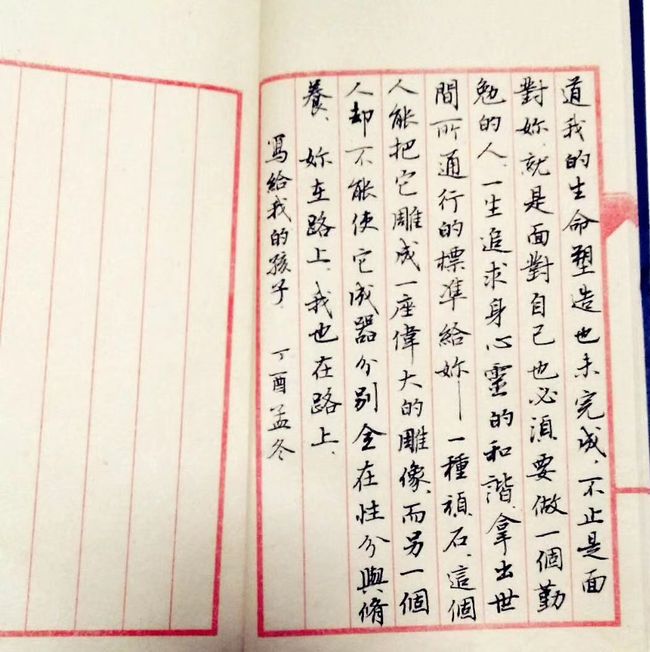 道我的生命塑造也未完成，不止是面
對妳，就是面對自己也必須要做一個勤
勉的人，一生追求身心靈的和諧，拿出世
間所通行的標準給妳——一種頑石，這個
人能把它雕成一座偉大的雕像，而另一個
人却不能使它成器，分別全在性分與脩
養，妳在路上，我也在路上，
寫給我的孩子，丁酉孟冬